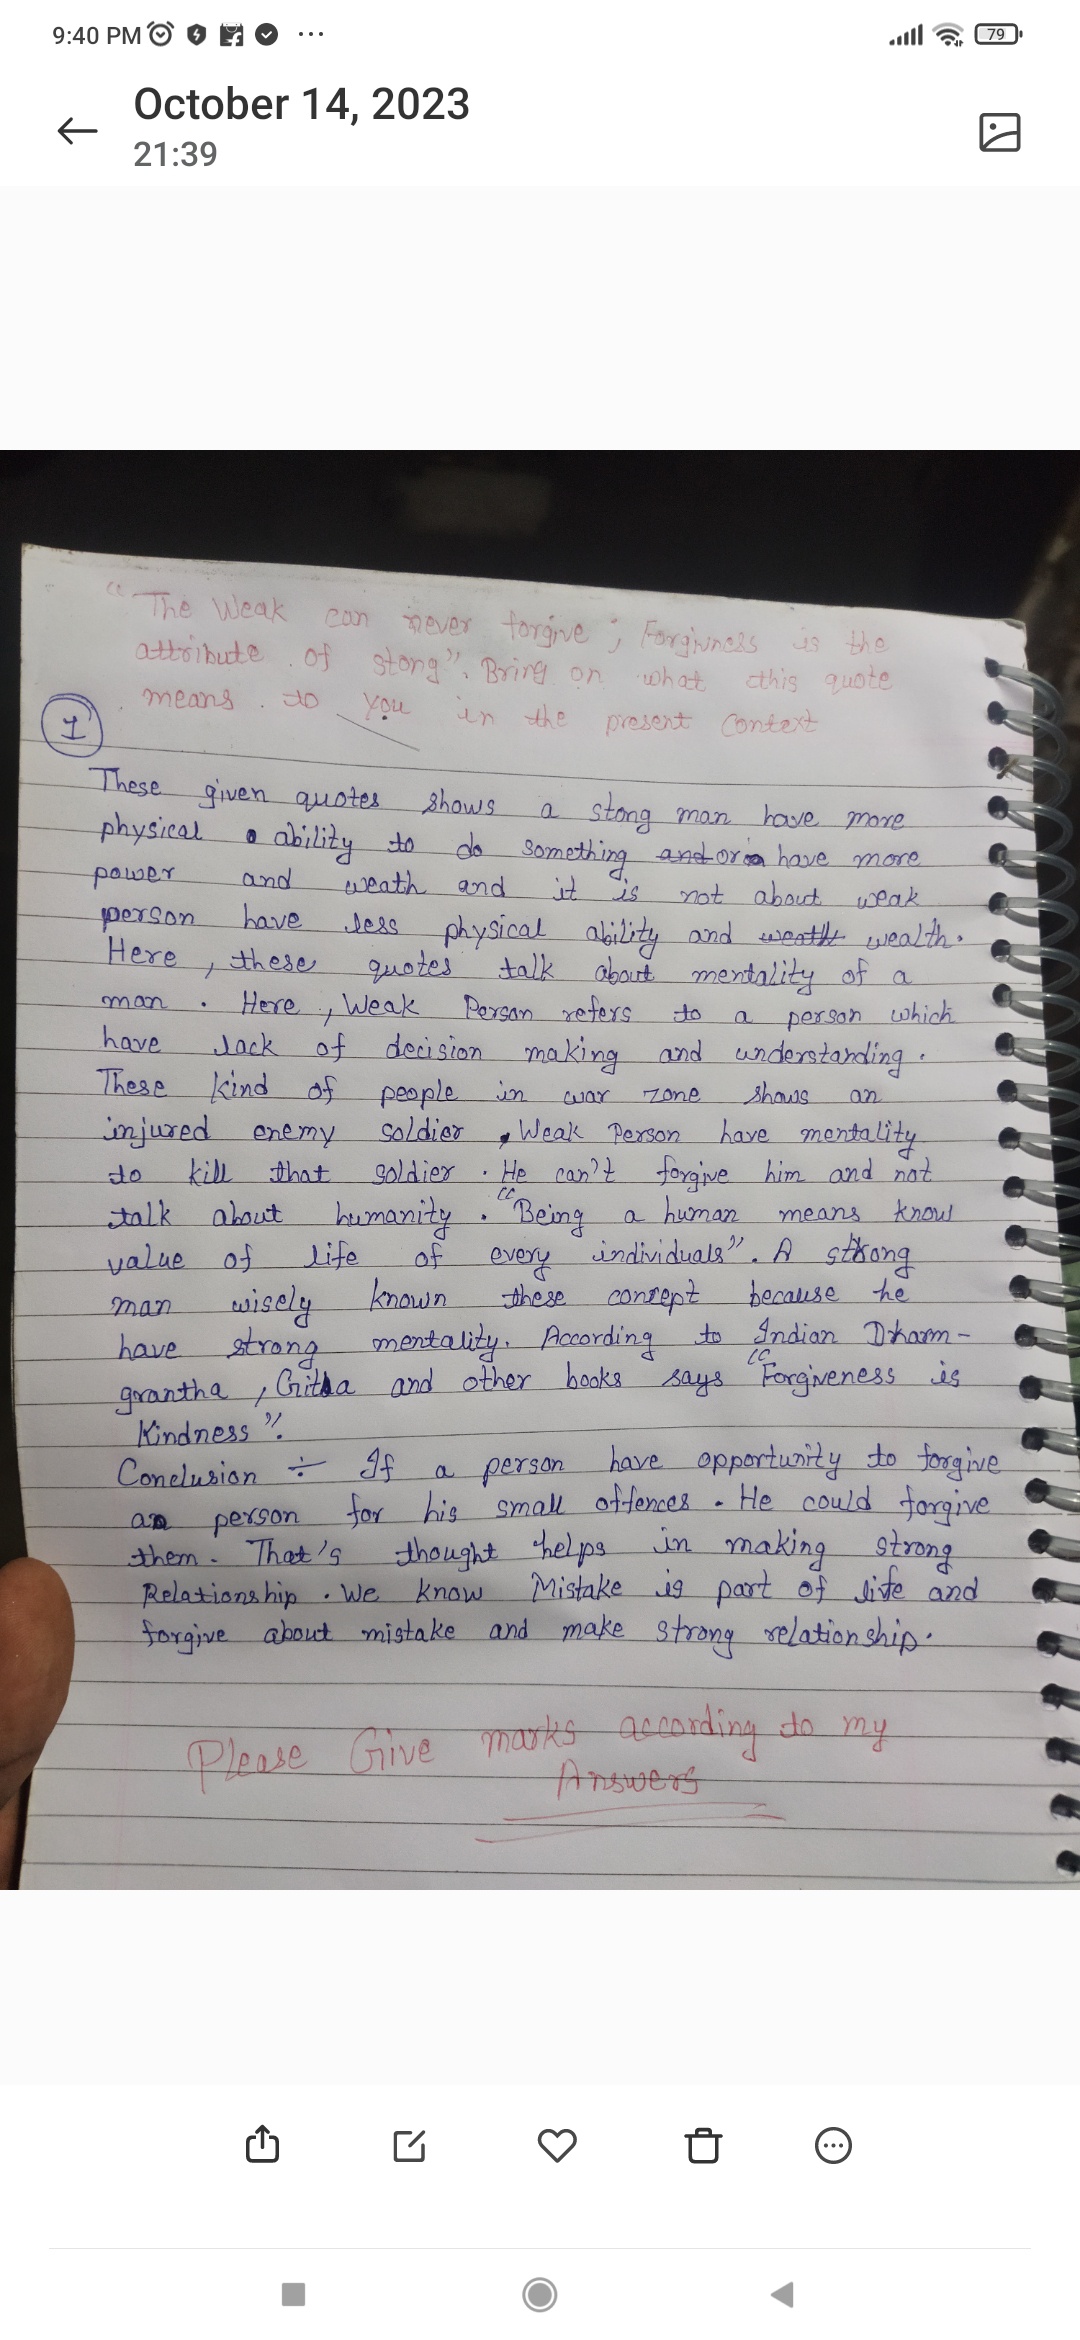 9:40 PM
79
October 14, 2023
21:39
"The Weak can never forgive ; Forgivness is the
attribute . of stong". Bring on what this quote
means . to you in the present Context
1
These given quotes shows a stong man have more
physical ability to do something and or have more
power and weath and it is not about weak
person have less physical ability and weatlh wealth.
Here , these quotes talk about mentality of a
man . Here , Weak Person refers to a person which
have lack of decision making and understanding .
These kind of people in war zone shows an
injured enemy soldier , Weak Person have mentality
to kill that soldier . He can't forgive him and not
talk about humanity . "Being a human means know
value of life of every individuals". A strong
man wisely known these concept because he
have strong mentality. According to Indian Dharm-
grantha , Githa and other books says "Forgiveness is
Kindness".
Conclusion ÷ If a person have opportunity to forgive
an person for his small offences . He could forgive
them . That's thought helps in making strong
Relationship . We know Mistake is part of life and
forgive about mistake and make strong relationship.
Please Give marks according to my
Answers